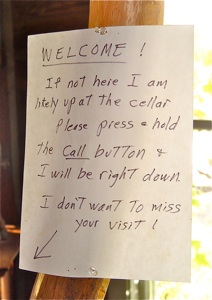 WELCOME !
If not here I am
likely up at the cellar
Please press & hold
the Call button &
I will be right down
I don't want to miss
your visit !